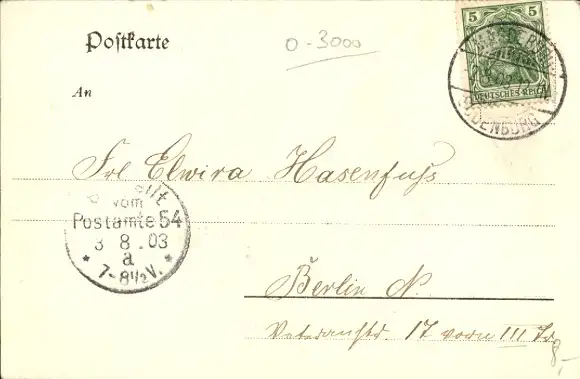 Postkarte
0-3000
5 5
DEUTSCHES REICH
OLDENBURG
An
Frl Elwira Hasenfuss
Bestellt
vom
Postamte 54
3 8.03
a
* 7-8½V. *
Berlin N.
Veteranstr. 17 vorn III Tr
8,-